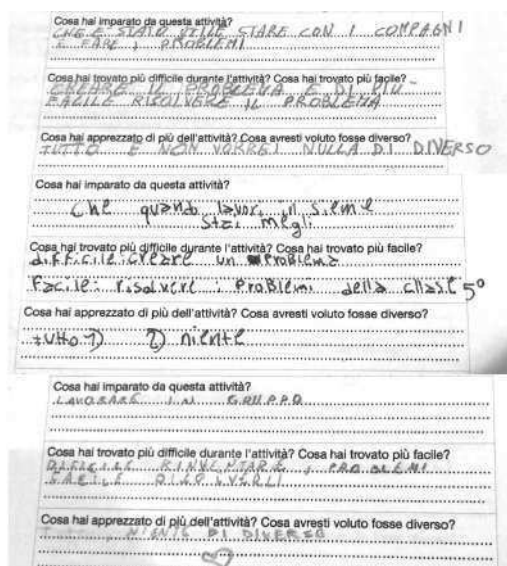 Cosa hai imparato da questa attività?
CHE E STATO UTILE STARE CON I COMPAGNI
E FARE I PROBLEMI
Cosa hai trovato più difficile durante l'attività? Cosa hai trovato più facile?
CREARE IL PROBLEMA E DI PIU
FACILE RISOLVERE IL PROBLEMA
Cosa hai apprezzato di più dell'attività? Cosa avresti voluto fosse diverso?
TUTTO E NON VORREI NULLA DI DIVERSO
Cosa hai imparato da questa attività?
Che quando lavori insieme
stai megli
Cosa hai trovato più difficile durante l'attività? Cosa hai trovato più facile?
difficile: creare un problema
Facile: risolvere i problemi della cllase 5°
Cosa hai apprezzato di più dell'attività? Cosa avresti voluto fosse diverso?
tutto 1) 2) niente
Cosa hai imparato da questa attività?
LAVORARE IN GRUPPO
Cosa hai trovato più difficile durante l'attività? Cosa hai trovato più facile?
DIFICILE RINVENTARE I PROBLEMI
FACILE RISOLVERLI
Cosa hai apprezzato di più dell'attività? Cosa avresti voluto fosse diverso?
NIENTE DI DIVERSO